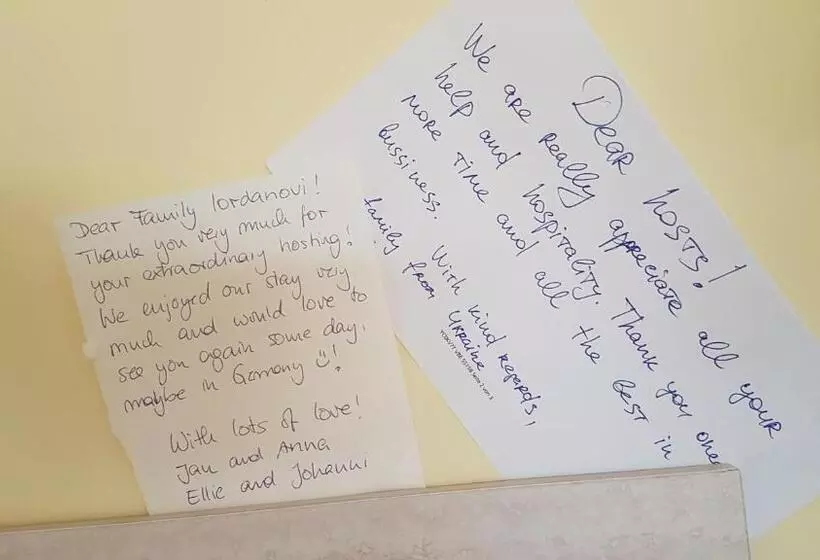 Dear Family Iordanovi!
Thank you very much for
your extraordinary hosting!
We enjoyed our stay very
much and would love to
see you again some day,
maybe in Germany ☺!
With lots of love!
Jan and Anna
Ellie and Johanni
Dear hosts!
We are really appreciate all your
help and hospitality. Thank you one
more time and all the best in
bussiness.
With kind regards,
family from Ukraine